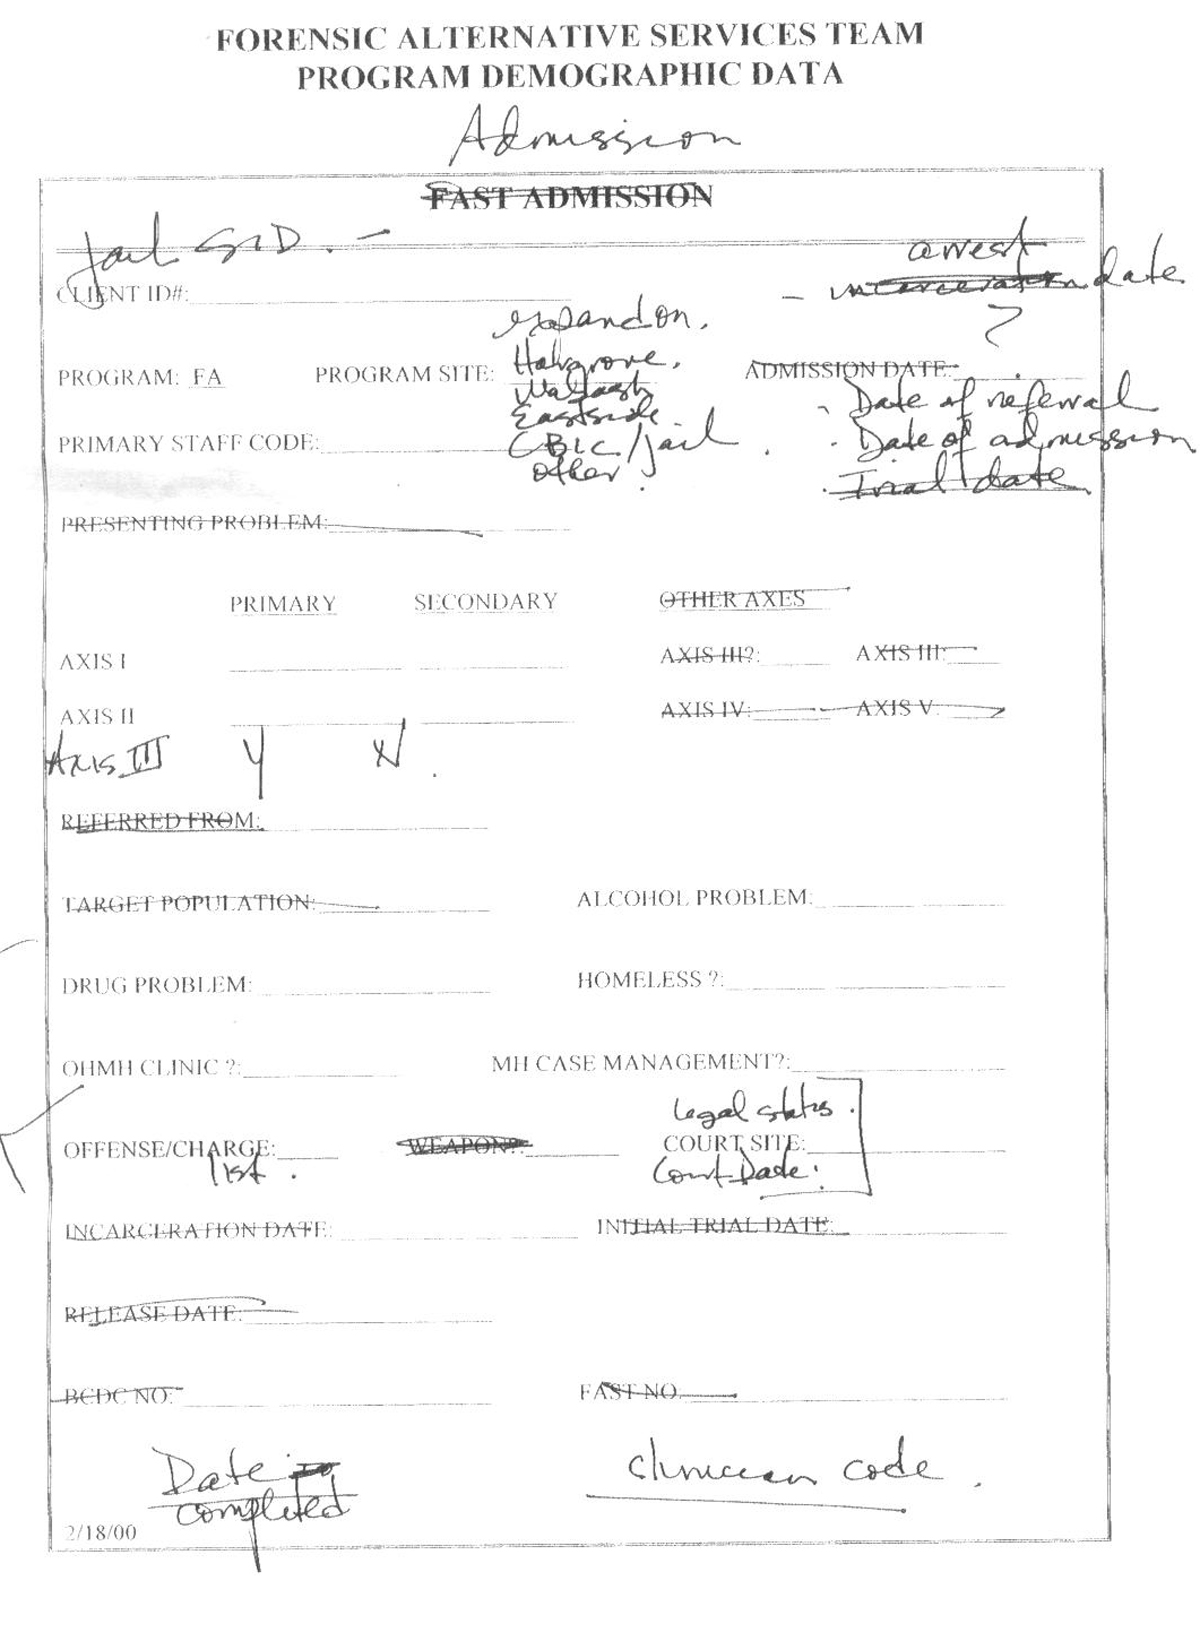 FORENSIC ALTERNATIVE SERVICES TEAM
PROGRAM DEMOGRAPHIC DATA
Admission
FAST ADMISSION
Jail SID. -
arrest
- incarceration date
?
CLIENT ID#:
expand on.
Hargrove.
Wabash
Eastside
CBIC/Jail.
other.
PROGRAM: FA PROGRAM SITE: ADMISSION DATE:
- Date of referral
PRIMARY STAFF CODE: - Date of admission
- Trial date
PRESENTING PROBLEM:
PRIMARY SECONDARY OTHER AXES
AXIS I AXIS III?: AXIS III:
AXIS II AXIS IV: AXIS V:
Axis III Y N.
REFERRED FROM:
TARGET POPULATION: ALCOHOL PROBLEM:
DRUG PROBLEM: HOMELESS ?:
OHMH CLINIC ?: MH CASE MANAGEMENT?:
Legal status.
OFFENSE/CHARGE: WEAPON?: COURT SITE:
list. Court Date:
INCARCERATION DATE: INITIAL TRIAL DATE:
RELEASE DATE:
BCDC NO: FAST NO
Date clinician code.
completed
2/18/00